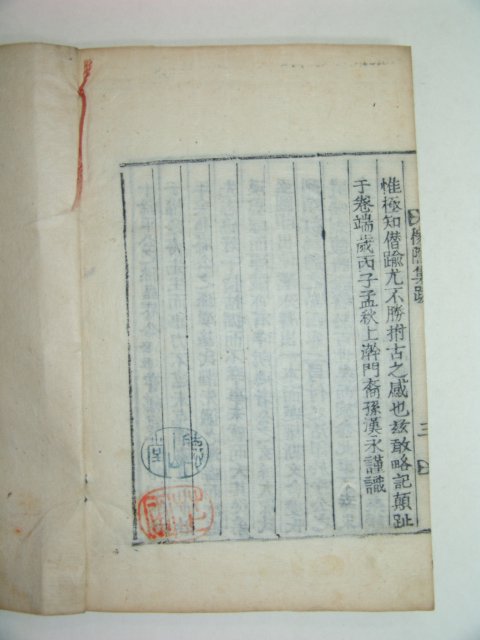 惟極知僭踰尤不勝拊古之感也玆敢略記顛趾
于卷端歲丙子孟秋上澣門裔孫漢永謹識
集跋
三